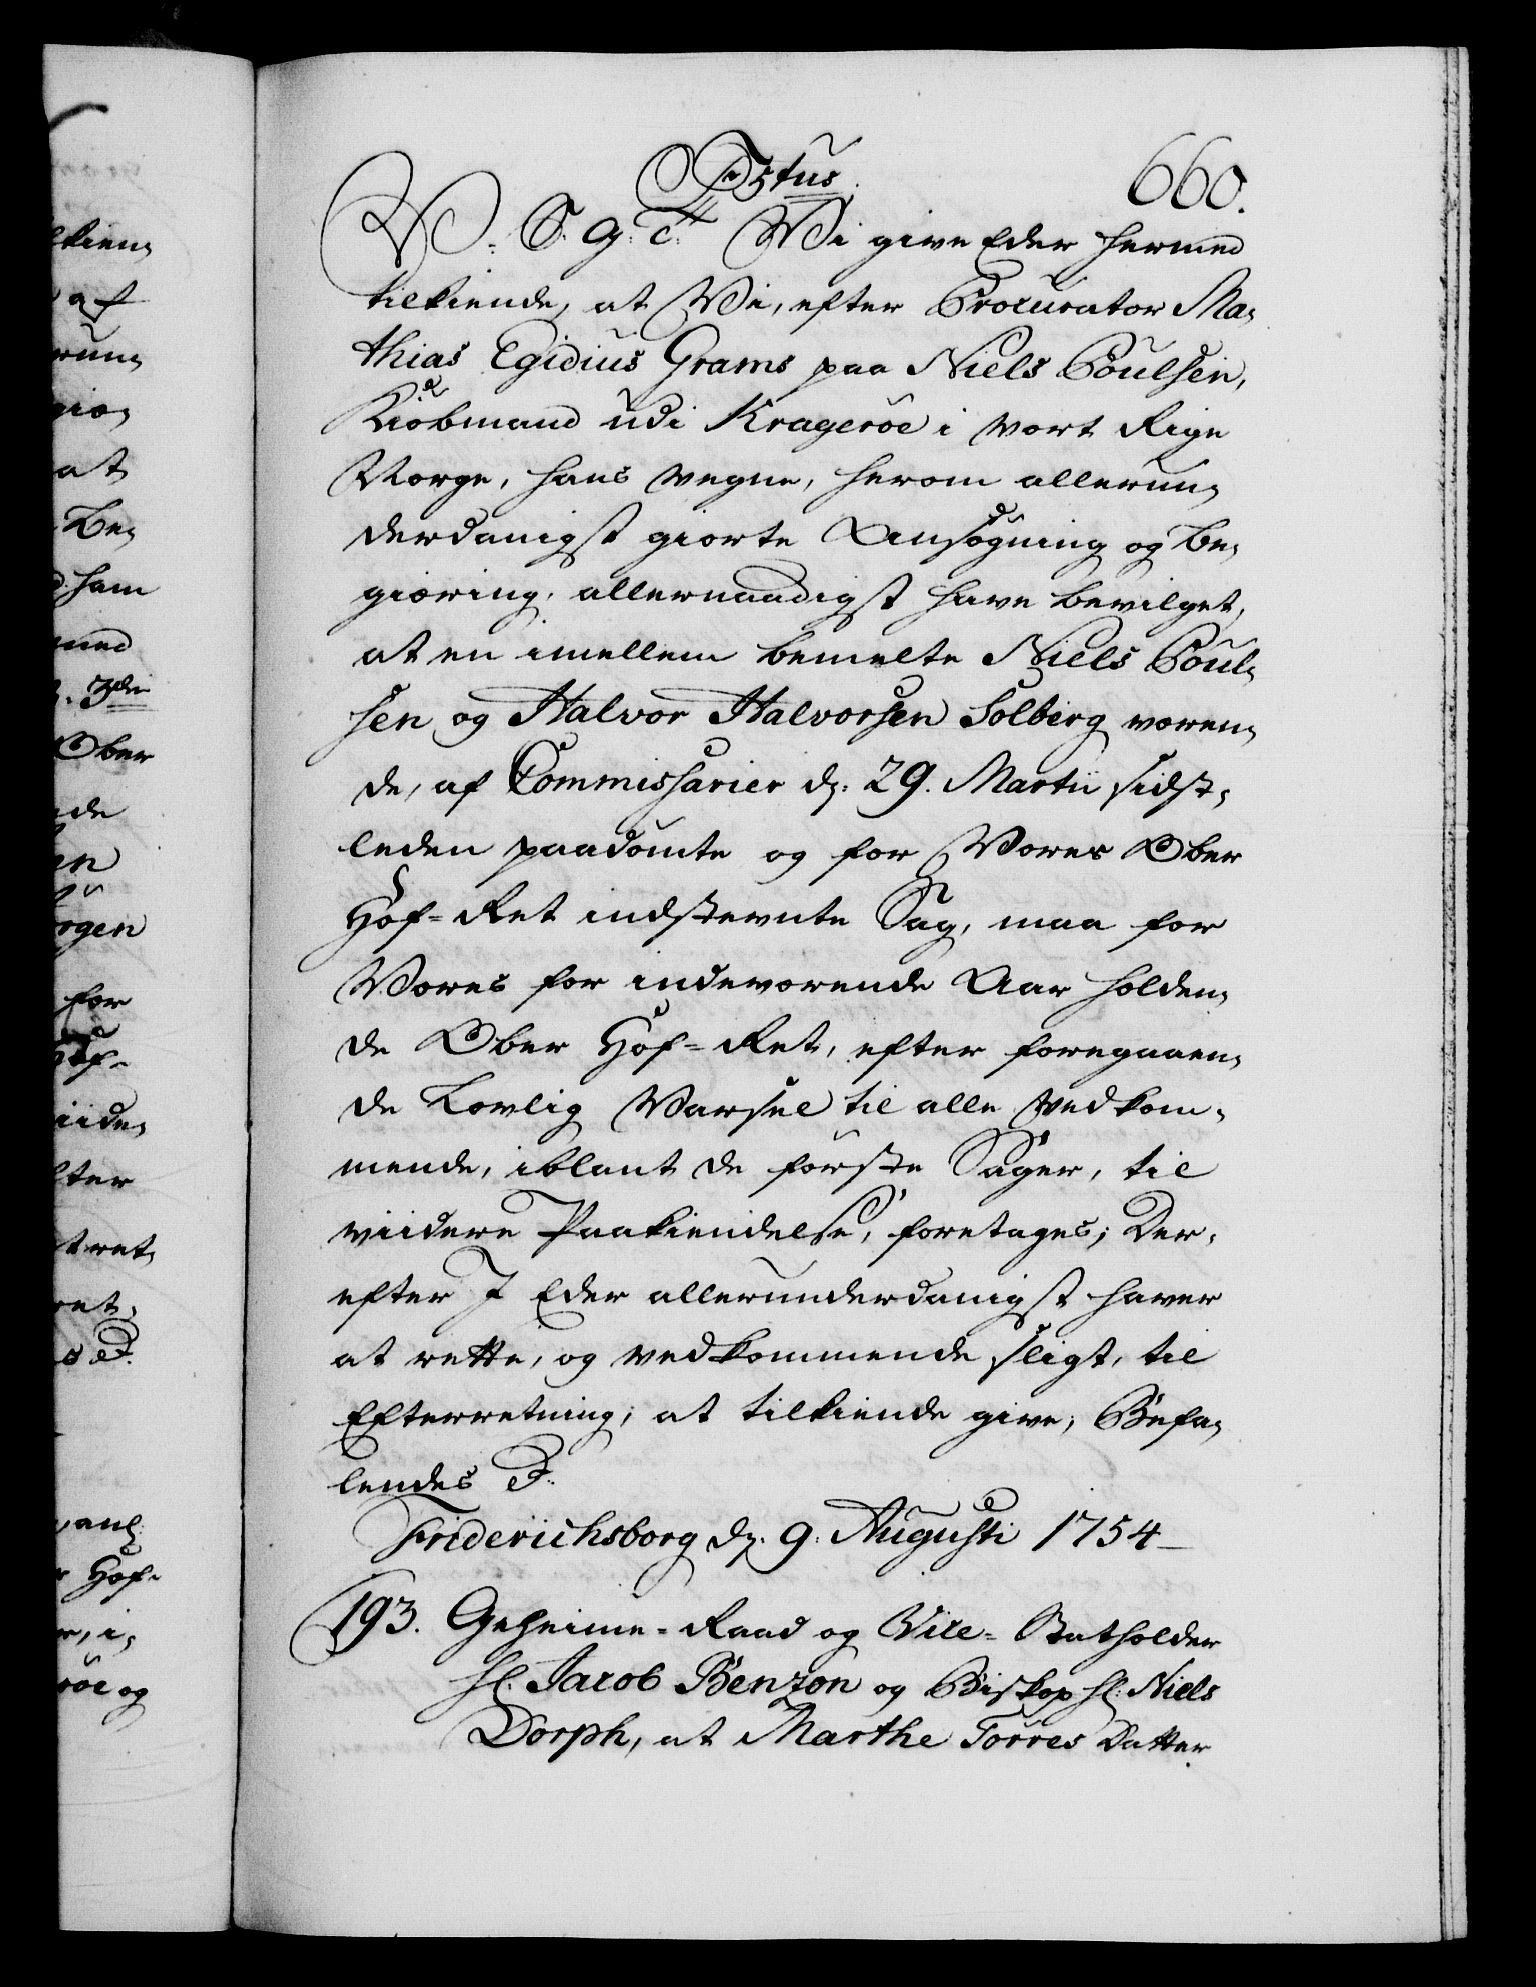 F 5tus.
660.
V. S. G. T. Wi give Eder hermed
tilkiende, at Wi, efter Procurator Ma-
thias Egidius Grams paa Niels Poulsen,
Kiöbmand udi Krageröe i vort Rige
Norge, hans vegne, herom allerun-
derdanigst giorte Ansögning og be-
giæring, allernaadigst have bevilget,
at en imellem bemelte Niels Poul-
sen og Halvor Halvorsen Solberg væren-
de, af Commissarier d. 29. Martii sidst-
leden paadömte og for Vores Ober
Hof-Ret indstevnte Sag, maa for
Vores for indeværende Aar holden-
de Ober Hof-Ret, efter foregaaen-
de Lovlig Varsel til alle vedkom-
mende, iblant de förste Sager, til
viidere Paakiendelse, foretages; Der-
efter I Eder allerunderdanigst haver
at rette, og vedkommende sligt, til
Efterretning, at tilkiende give, Befa-
lendes P.
Friderichsborg d. 9. Augusti 1754
193. Geheime-Raad og Vice-Statholder
H. Jacob Benzon og Biskop H. Niels
Dorph, at Marthe Törres Datter